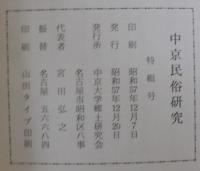 中京民俗研究
特輯号
印刷 昭和57年12月7日
発行 昭和57年12月20日
発行所 中京大学郷土研究会
名古屋市昭和区八事
代表者 宮田弘之
振替 名古屋 五六六八四
印刷 山田タイプ印刷